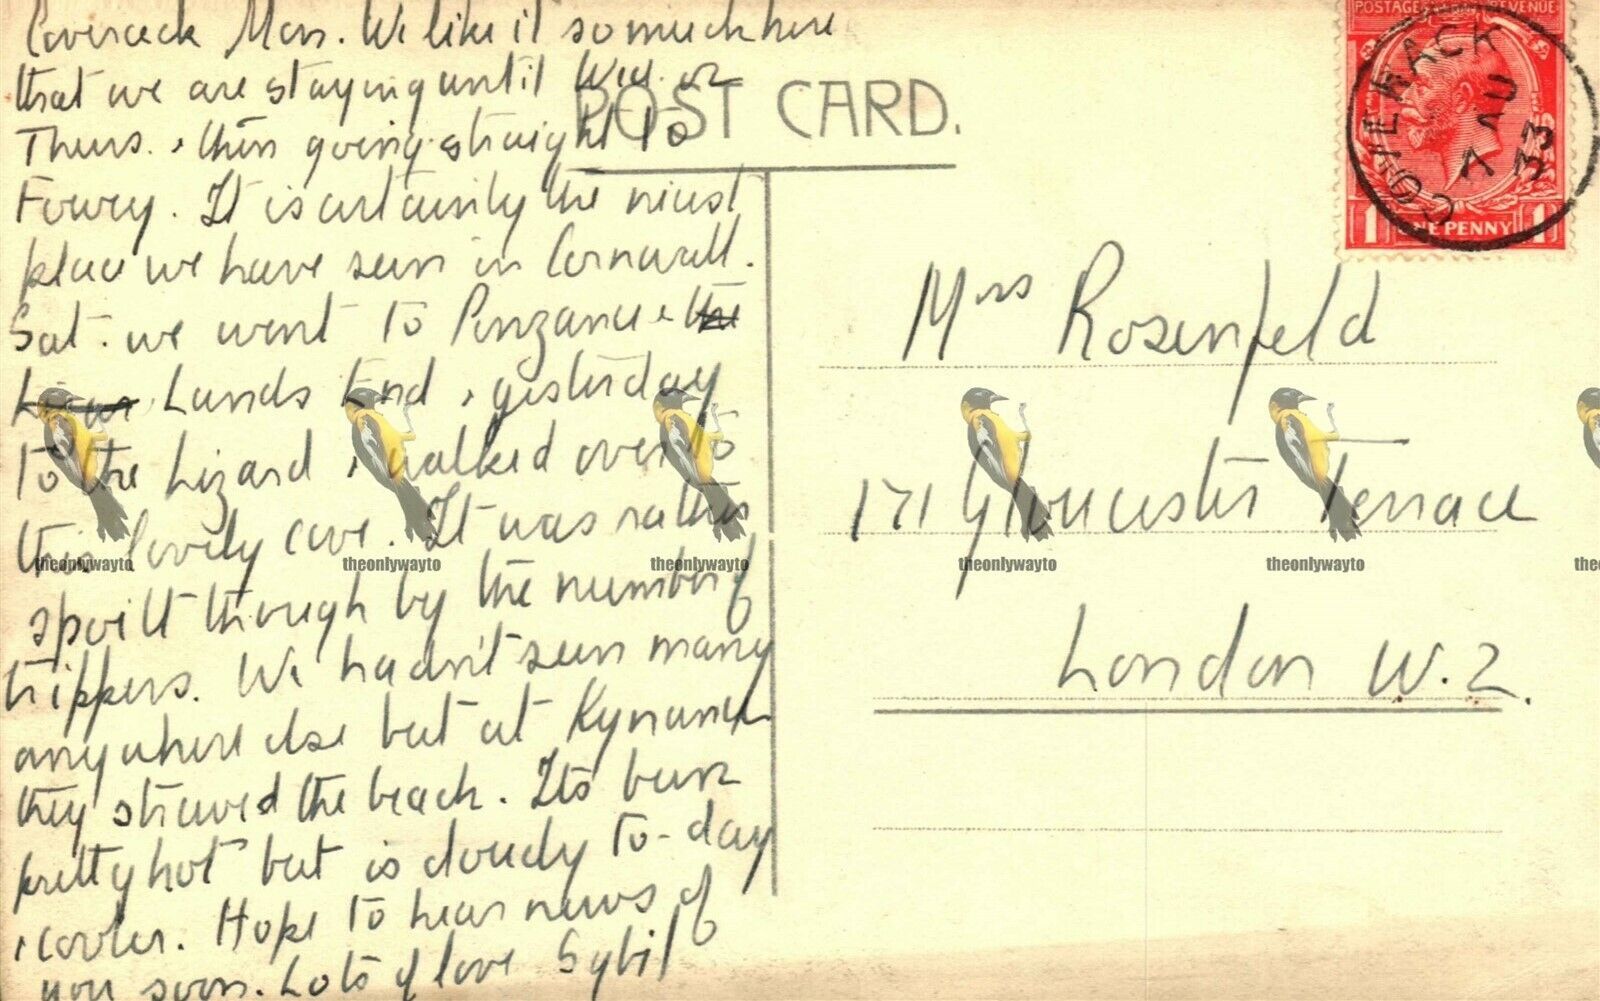 Coverack Mon. We like it so much here
that we are staying until Wed. or
Thurs. & then going straight to
Fowey. It is certainly the nicest
place we have seen in Cornwall.
Sat. we went to Penzance & the
Lands End & yesterday
to the Lizard & walked over to
this lovely cove. It was rather
spoilt though by the number of
trippers. We hadn't seen many
anywhere else but at Kynance
they strewed the beach. Its been
pretty hot but is cloudy to-day
& cooler. Hope to hear news of
you soon. Lots of love Sybil
POST CARD.
POSTAGE REVENUE
COVERACK
7 AU
33
1 ONE PENNY 1
Mrs Rosenfeld
171 Gloucester Terrace
London W.2.
theonlywayto theonlywayto theonlywayto theonlywayto theonlywayto the